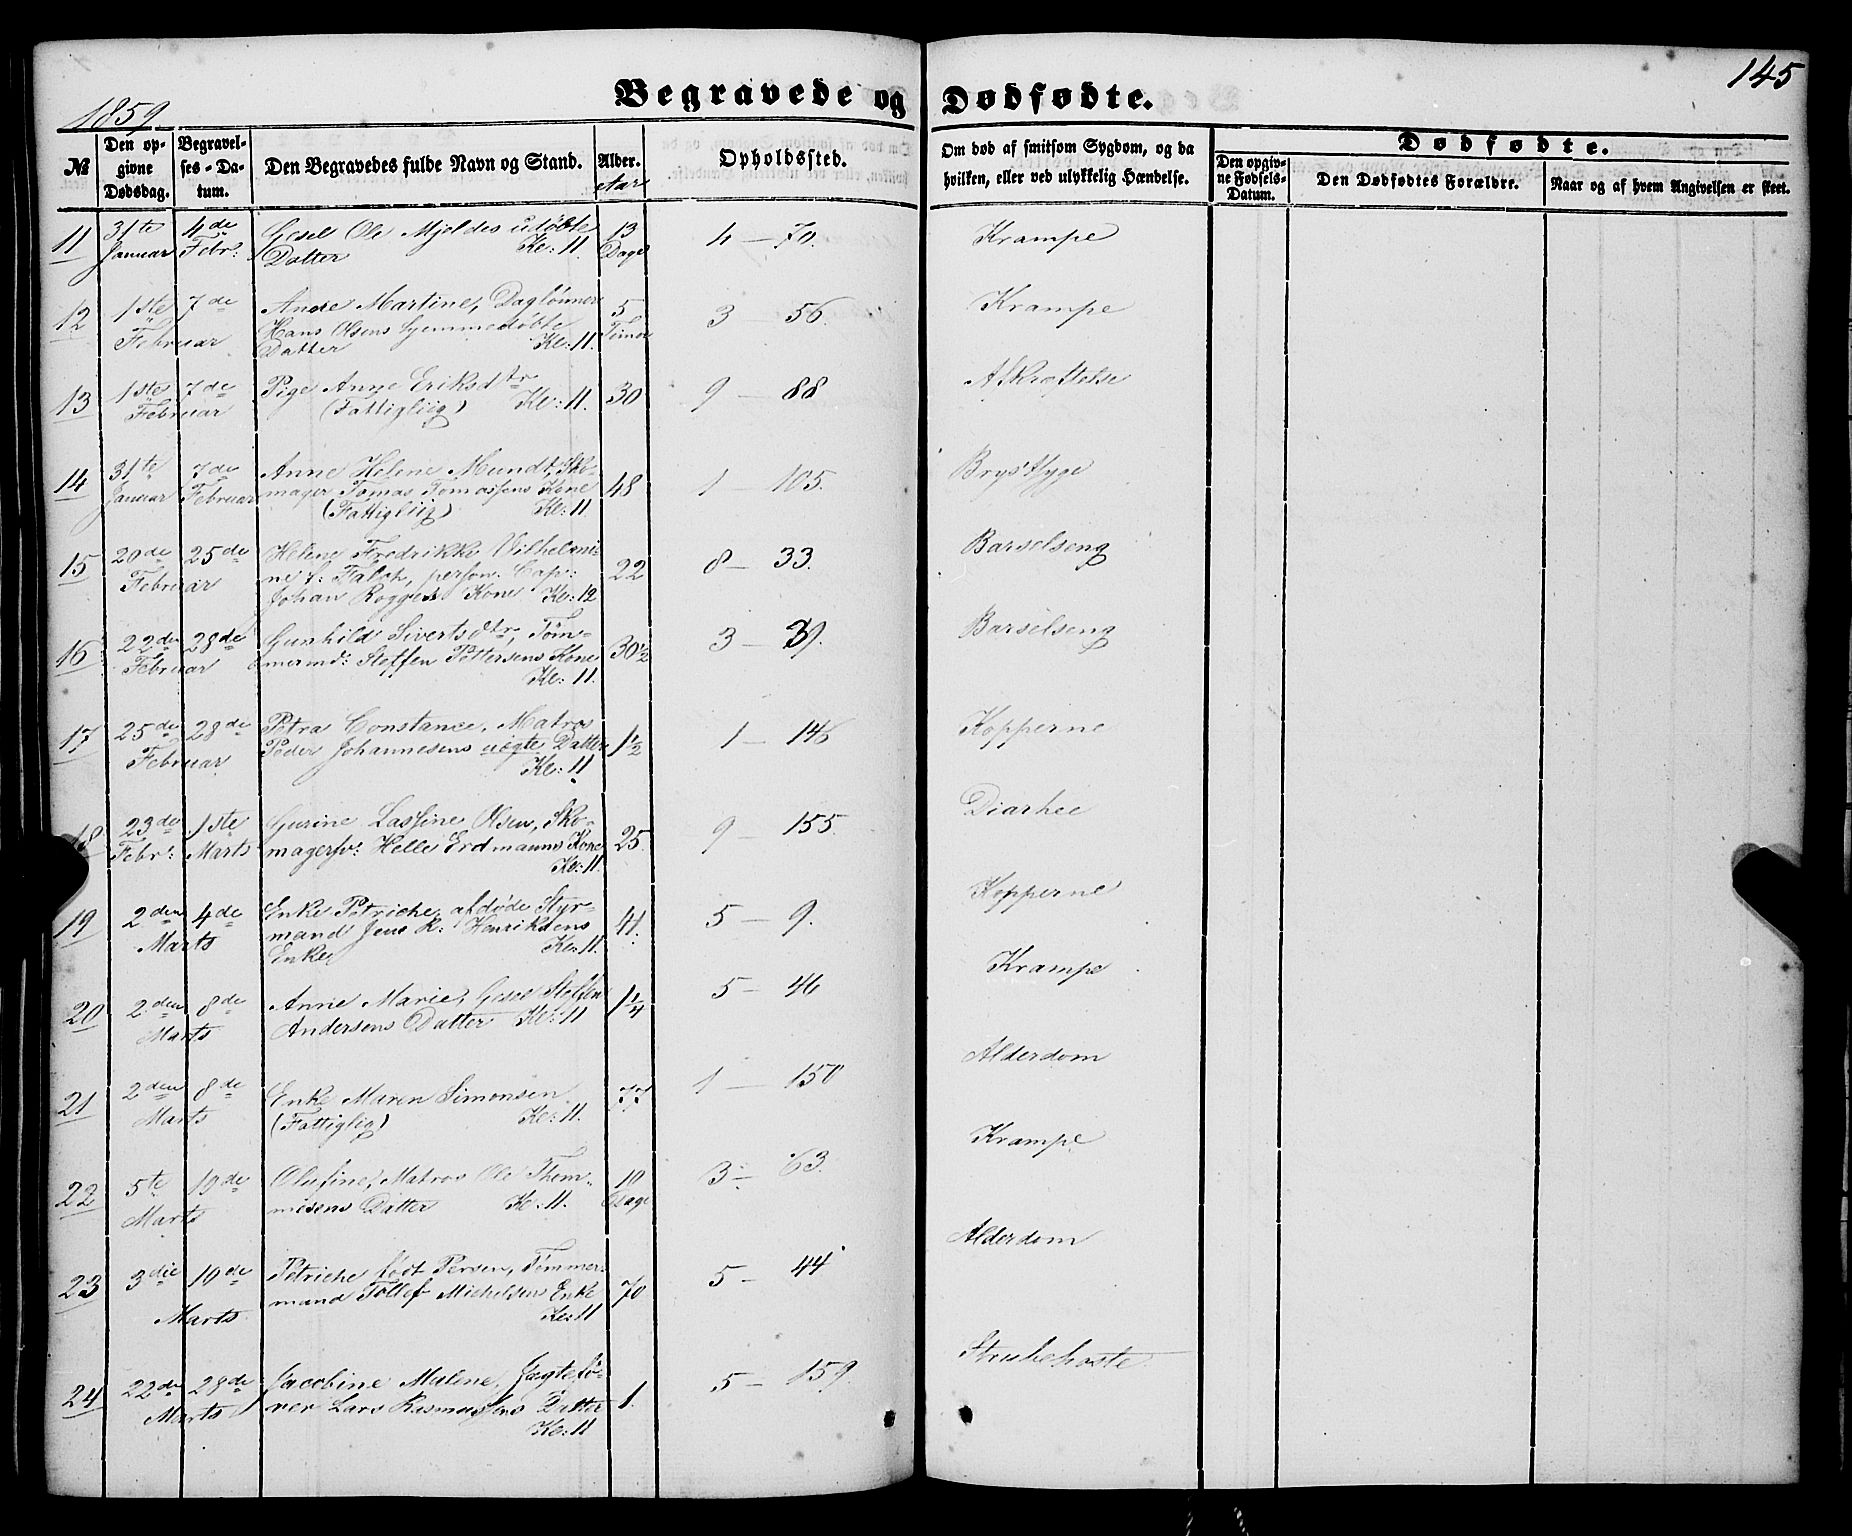 1859
Begravede og Dødfødte.
145
№
Den opgivne Dødsdag.
Begravelses-Datum.
Den Begravedes fulde Navn og Stand.
Alder.
Aar
Opholdssted.
Om død af smitsom Sygdom, og da hvilken, eller ved ulykkelig Hændelse.
Dødfødte.
Den opgivne Fødsels-Datum.
Den Dødfødtes Forældre.
Naar og af hvem Angivelsen er skeet.
11 31te Januar 4de Febr: Gesel Ole Mjeldes udøbte 13 Dage 4 — 70. Krampe
Datter Kl: 11.
12 1ste Februar 7de Anne Martine, Daglønner 5 3 — 56. Krampe
Hans Olsens hjemmedøbte
Datter Kl: 11.
13 1ste Februar 7de Pige Anne Eriksdtr 30 9 — 88 Afkræftelse
(Fattigliig) Kl: 11.
14 31te Januar 7de Februar Anne Helene Mundt, Sko- 48 1 105. Brystsyge
mager Tomas Tomassens Kone
(Fattigliig) Kl: 11.
15 20de Februar 25de Helene Fredrikke Vilhelmi- 22 8 — 33. Barselseng
ne f: Falch, person: Cap:
Johan Rogges Kone Kl: 12
16 22de Februar 28de Gunhild Sivertsdtr, Töm- 30½ 3 — 39. Barselseng
mermd: Steffen Pettersens Kone
Kl: 11.
17 25de Februar 28de Petra Constance, Matros 1½ 1 — 146 Kopperne
Peder Johannesens uægte Datter
Kl: 11
18 23de Febr: 1ste Marts Gurine Lassine Olsen, Sko- 25. 9 — 155. Diarhee
magersv: Helle Erdmanns Kone
Kl: 11.
19 2den Marts 4de Enke Petriche, afdøde Styr- 41. 5 — 9. Kopperne
mand Jens R: Henriksens
Enke Kl: 11.
20 2den Marts 8de Anne Marie, Gesel Steffen 1¼ 5 — 46 Krampe
Andersens Datter Kl: 11
21 2den Marts 8de Enke Maren Simonsen. 77 1 — 150 Alderdom
(Fattiglig) Kl: 11.
22 5te Marts 10de Olufine, Matros Ole Them- 10 Dage 3 — 63. Krampe
mesens Datter Kl: 11.
23 3die Marts 10de Petriche født Persen, Tömmer- 70 5 — 44 Alderdom
mand Tollef Michelsens Enke
Kl: 11
24 22de Marts 28de Jacobine Malene, Jægtefö- 1. 5 — 159 Strubehoste
rer Lars Rasmussens Datter
Kl: 11